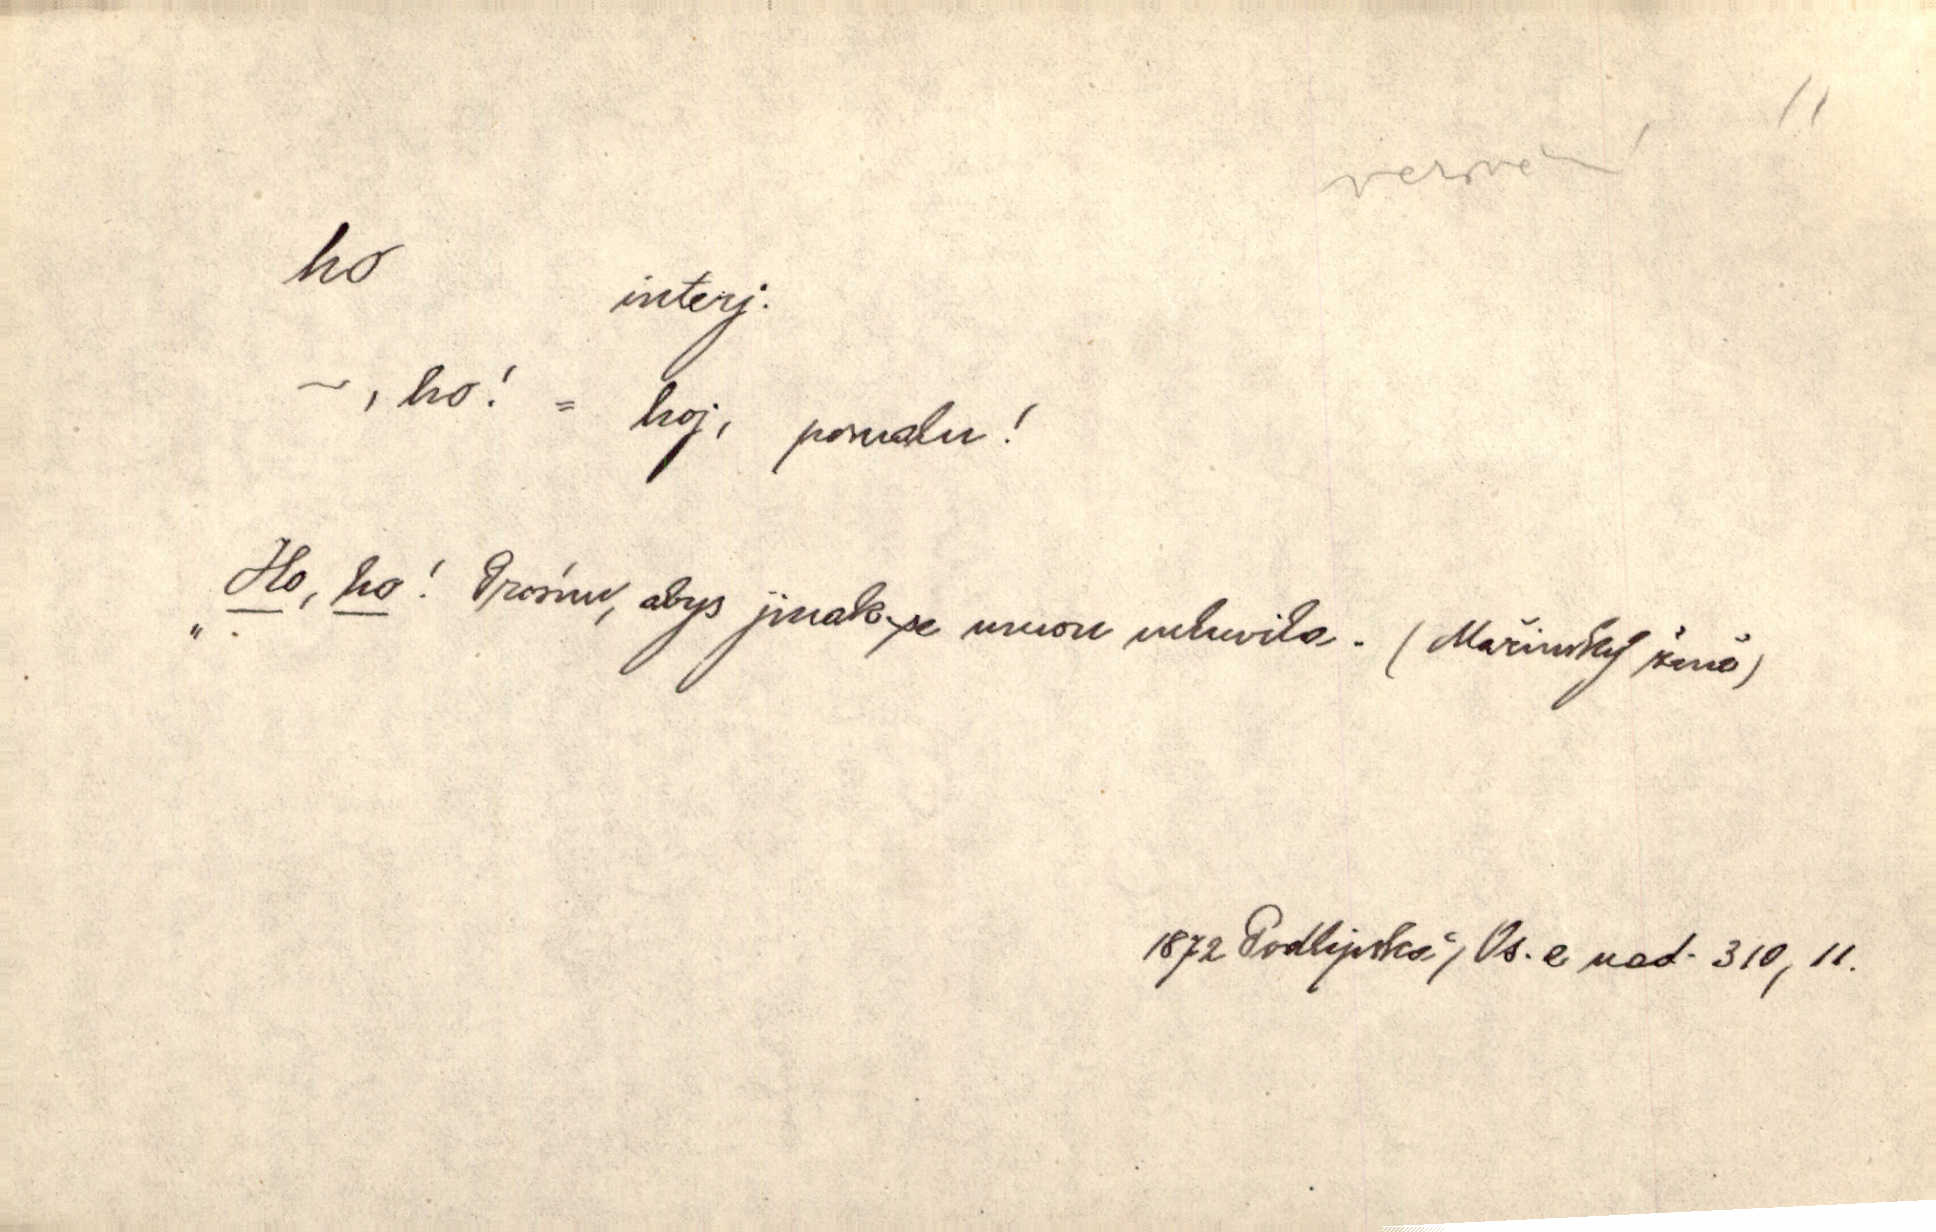 11
ho interj.
~, ho! = hoj, pomalu!
„Ho, ho! Prosím, abys jinak se mnou mluvila. (Mařinský ženě)
1872 Podlipská, Os. a nad. 310, 11.